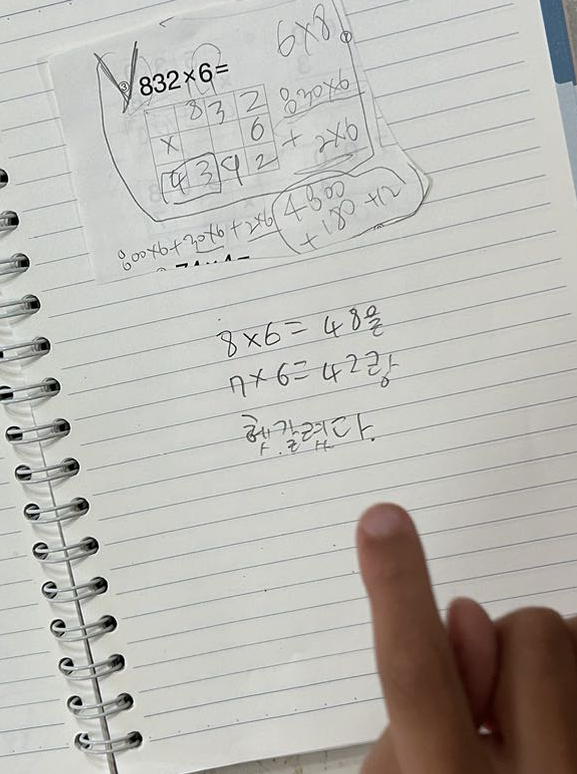 ③ 832×6=
8 3 2
× 6
4 3 9 2
8×6
30×6
+ 2×6
4800
+ 180 + 12
800×6+30×6+2×6
8×6=48을
7×6=42랑
헷갈렸다.